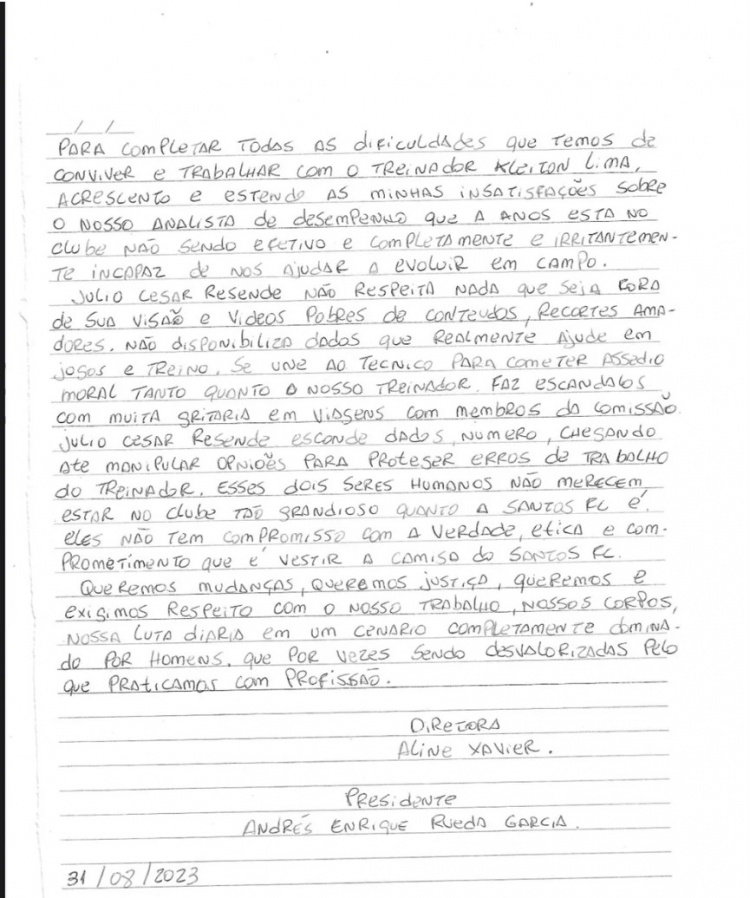 __/__/__
PARA COMPLETAR TODAS AS dificuldades que TEMOS de
CONVIVER e TRABALHAR com o TREINADOR KLEITON LIMA,
ACRESCENTO e ESTENDO AS MINHAS INSATISFAÇÕES SOBRE
O NOSSO ANALISTA de desempenho que A ANOS ESTA NO
clube NÃO SENDO EFETIVO e COMPLETAMENTE e IRRITANTEMEN-
TE INCAPAZ de NOS AJUDAR A evoluir em CAMPO.
JULIO CESAR RESENDE NÃO RESPEITA NADA que seja FORA
de SUA VISÃO e VIDEOS POBRES de CONTEUDOS, RECORTES AMA-
DORES. NÃO disponibiliza dados que REALMENTE AJUDE em
jogos e TREINO. Se UNE AO TECNICO PARA COMETER ASSEDIO
MORAL TANTO QUANTO O NOSSO TREINADOR. FAZ ESCANDALOS
COM MUITA GRITARIA em VIAGENS COM MEMBROS da COMISSÃO.
JULIO CESAR RESENDE esconde dados, NUMERO, CHEGANDO
ATE MANIPULAR OPNIÕES PARA PROTEGER ERROS de TRABALHO
do TREINADOR. ESSES DOIS SERES HUMANOS NÃO MERECEM
ESTAR NO clube TÃO GRANDIOSO QUANTO A SANTOS FC É.
eles NÃO TEM COMPROMISSO COM A VERDADE, etica e COM-
PROMETIMENTO que é VESTIR A CAMISA do SANTOS FC.
QUEREMOS MUDANÇAS, QUEREMOS JUSTIÇA, QUEREMOS e
exigimos RESPEITO COM O NOSSO TRABALHO, NOSSOS CORPOS,
NOSSA LUTA DIARIA em UM CENARIO COMPLETAMENTE domina-
do POR HOMENS, que POR VEZES SENDO DESVALORIZADAS PELO
que PRATICAMOS COM PROFISSÃO.
DIRETORA
ALINE XAVIER.
PRESIDENTE
ANDRÉS ENRIQUE RUEDA GARCIA.
31/08/2023